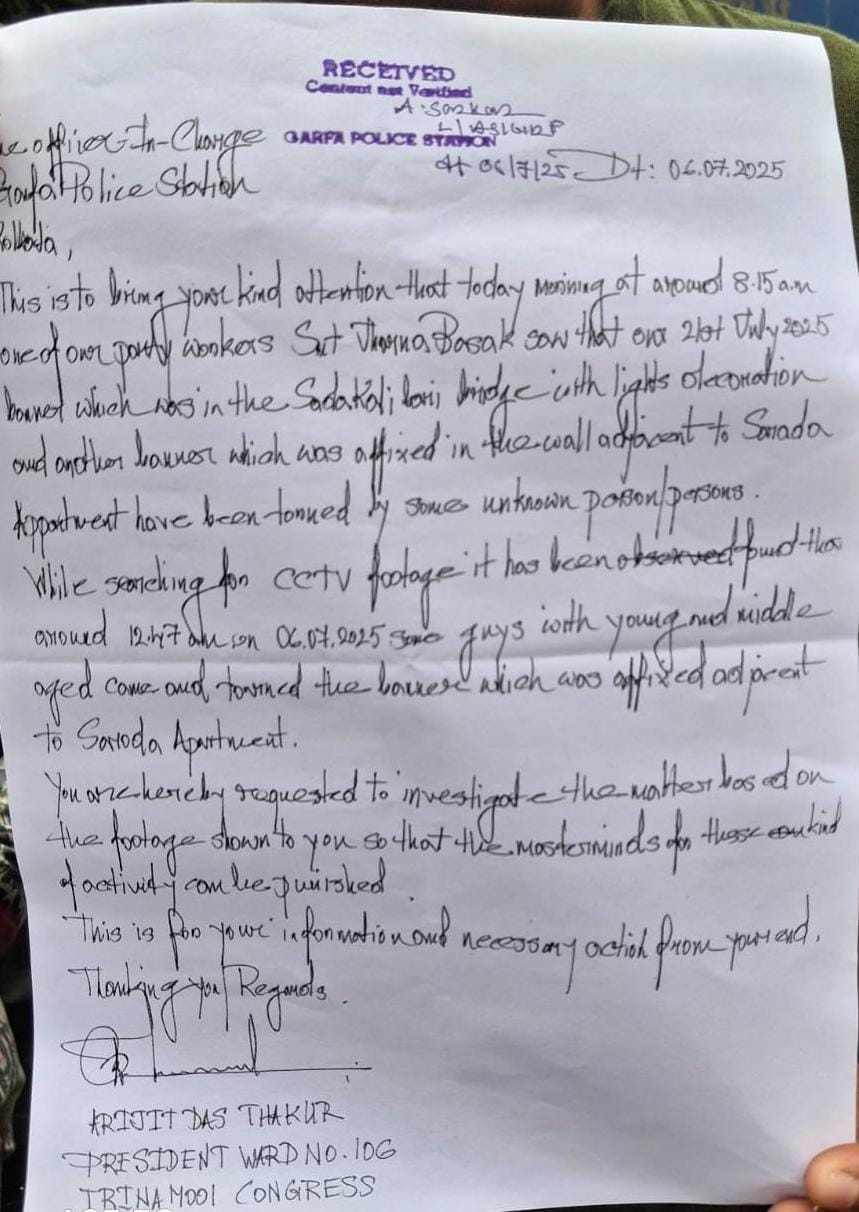 RECEIVED
Content not Verified
A. Sarkar
GARFA POLICE STATION
dt 06/7/25
Dt: 06.07.2025
e officer-In-Charge
Garfa Police Station
olkata,
This is to bring your kind attention that today morining at around 8.15 a.m
one of our party workers Smt Jhorna Basak saw that our 21st July 2025
banner which was in the Sadakali bari bridge with lights decoration
and another banner which was affixed in the wall adjacent to Sarada
Appartment have been torned by some unknown person/persons.
While searching for CCTV footage it has been observed found tha
around 12.47 am on 06.07.2025 some guys with young and middle
aged came and torned the banner which was affixed adjacent
to Saroda Apartment.
You are hereby requested to investigate the matter based on
the footage shown to you so that the masterminds for these kind
of activity can be punished.
This is for your information and necessary action from your end.
Thanking you/Regards.
ARIJIT DAS THAKUR
PRESIDENT WARD NO. 106
TRINAMOOL CONGRESS